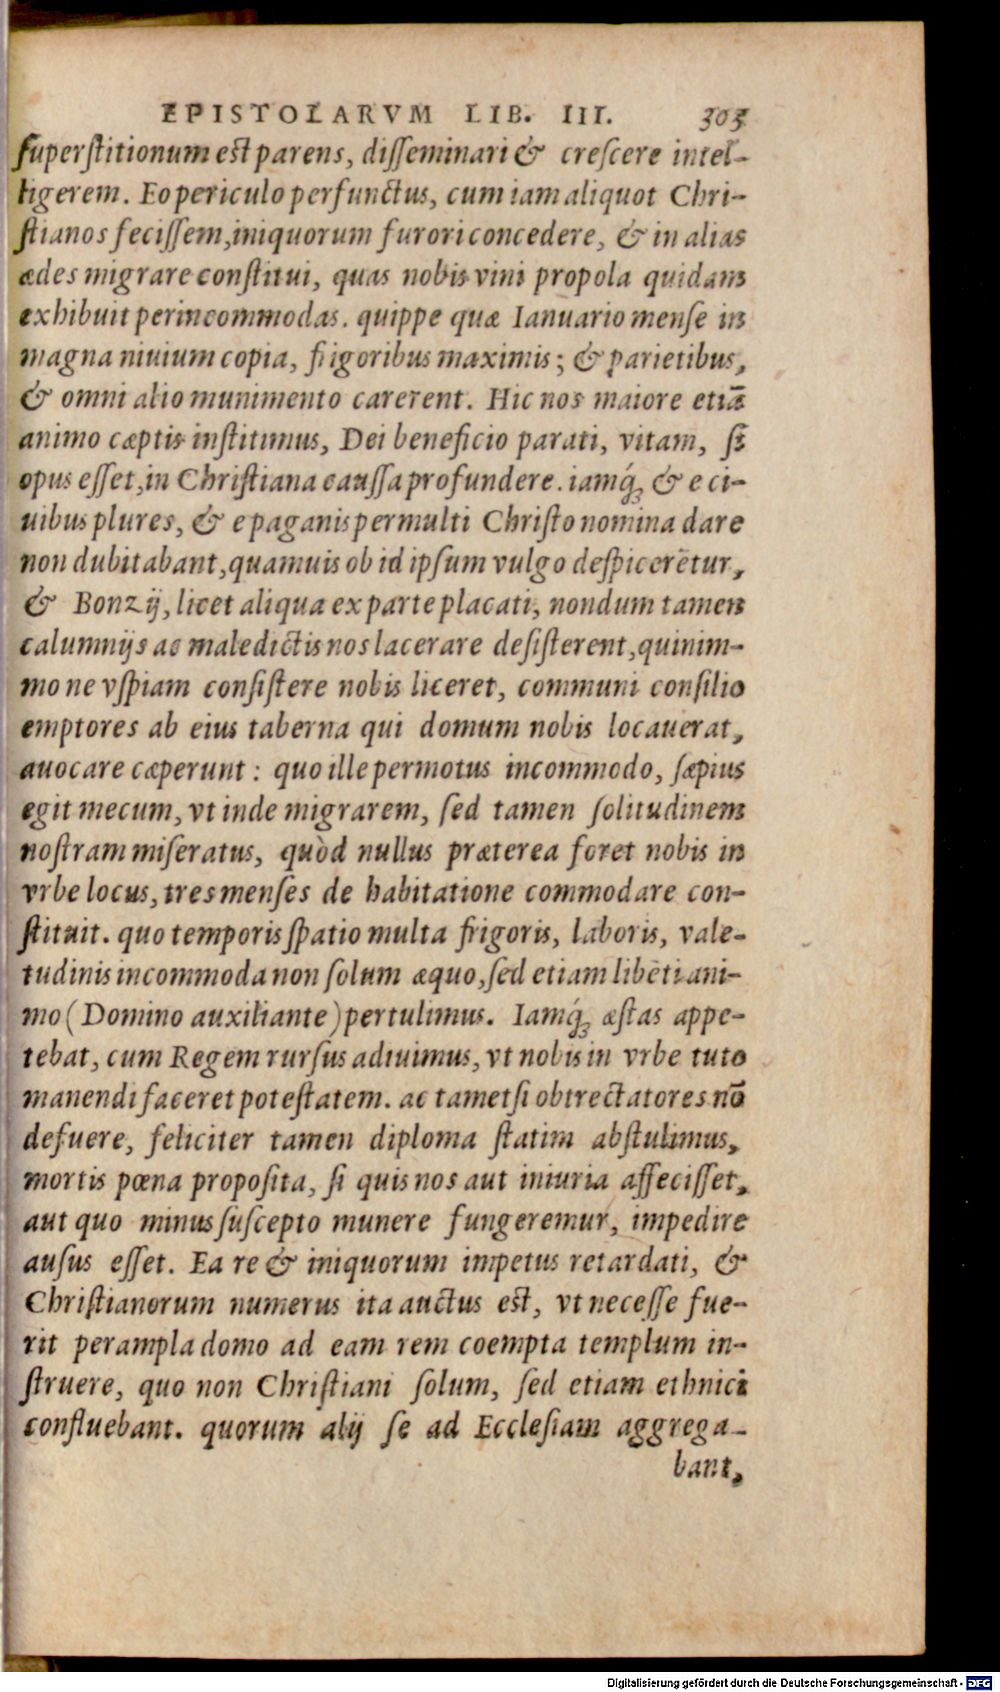 EPISTOLARVM LIB. III. 303
ſuperſtitionum est parens, diſſeminari & creſcere intel-
ligerem. Eo periculo perfunctus, cum iam aliquot Chri-
ſtianos feciſſem, iniquorum furori concedere, & in alias
ædes migrare conſtitui, quas nobis vini propola quidam
exhibuit perincommodas. quippe quæ Ianuario menſe in
magna niuium copia, frigoribus maximis; & parietibus,
& omni alio munimento carerent. Hic nos maiore etiā
animo cæptis inſtitimus, Dei beneficio parati, vitam, ſi
opus eſſet, in Chriſtiana cauſſa profundere. iamq́; & e ci-
uibus plures, & e paganis permulti Chriſto nomina dare
non dubitabant, quamuis ob id ipſum vulgo deſpicerētur,
& Bonzij, licet aliqua ex parte placati, nondum tamen
calumnijs ac maledictis nos lacerare deſiſterent, quinim-
mo ne vſpiam conſiſtere nobis liceret, communi conſilio
emptores ab eius taberna qui domum nobis locauerat,
auocare cæperunt: quo ille permotus incommodo, ſæpius
egit mecum, vt inde migrarem, ſed tamen ſolitudinem
noſtram miſeratus, quòd nullus præterea foret nobis in
vrbe locus, tres menſes de habitatione commodare con-
ſtituit. quo temporis ſpatio multa frigoris, laboris, vale-
tudinis incommoda non ſolum æquo, ſed etiam libēti ani-
mo (Domino auxiliante) pertulimus. Iamq́; æſtas appe-
tebat, cum Regem rurſus adiuimus, vt nobis in vrbe tuto
manendi faceret poteſtatem. ac tametſi obtrectatores nō
defuere, feliciter tamen diploma ſtatim abſtulimus,
mortis pœna propoſita, ſi quis nos aut iniuria affeciſſet,
aut quo minus ſuſcepto munere fungeremur, impedire
auſus eſſet. Ea re & iniquorum impetus retardati, &
Chriſtianorum numerus ita auctus est, vt neceſſe fue-
rit perampla domo ad eam rem coempta templum in-
ſtruere, quo non Chriſtiani ſolum, ſed etiam ethnici
confluebant. quorum alij ſe ad Eccleſiam aggrega-
bant,
Digitalisierung gefördert durch die Deutsche Forschungsgemeinschaft - DFG